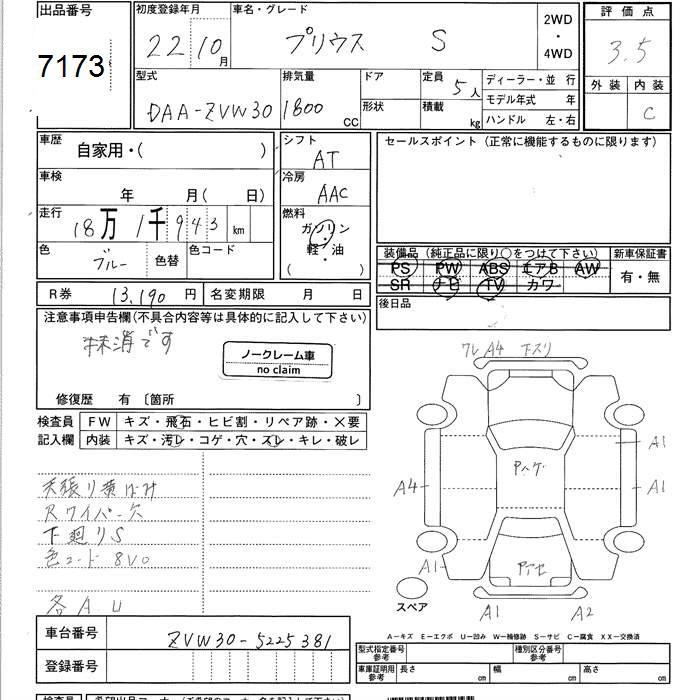 出品番号
7173
初度登録年月
22 10月
車名・グレード
プリウス S
2WD
・
4WD
評価点
3.5
外装 内装
C
型式
DAA-ZVW30
排気量
1800 cc
ドア
形状
定員 5人
積載 kg
ディーラー・並行
モデル年式 年
ハンドル 左・右
車歴
自家用・( )
シフト
AT
セールスポイント (正常に機能するものに限ります)
車検
年 月( 日)
冷房
AAC
走行
18万1千943km
燃料
ガソリン
・
軽・油
( )
色
ブルー
色替
色コード
装備品 (純正品に限り○をつけて下さい)
新車保証書
PS PW ABS エアB AW
有・無
SR ナビ TV カワ
R券 13,190円
名変期限 月 日
後日品
注意事項申告欄(不具合内容等は具体的に記入して下さい)
抹消です
ノークレーム車
no claim
修復歴 有 〔箇所 〕
検査員
記入欄
FW キズ・飛石・ヒビ割・リペア跡・×要
内装 キズ・汚レ・コゲ・穴・スレ・キレ・破レ
天張り黄ばみ
Rワイパー欠
下廻りS
色コード 8V0
各A.U
ワレ A4 下スリ
A1
A4
A1
A1
A1 A2
スペア
A−キズ E−エクボ U−凹み W−補修跡 S−サビ C−腐食 XX−交換済
車台番号
ZVW30-5225381
登録番号
型式指定番号
参考
種別区分番号
参考
車庫証明用
参考
長さ cm
幅 cm
高さ cm